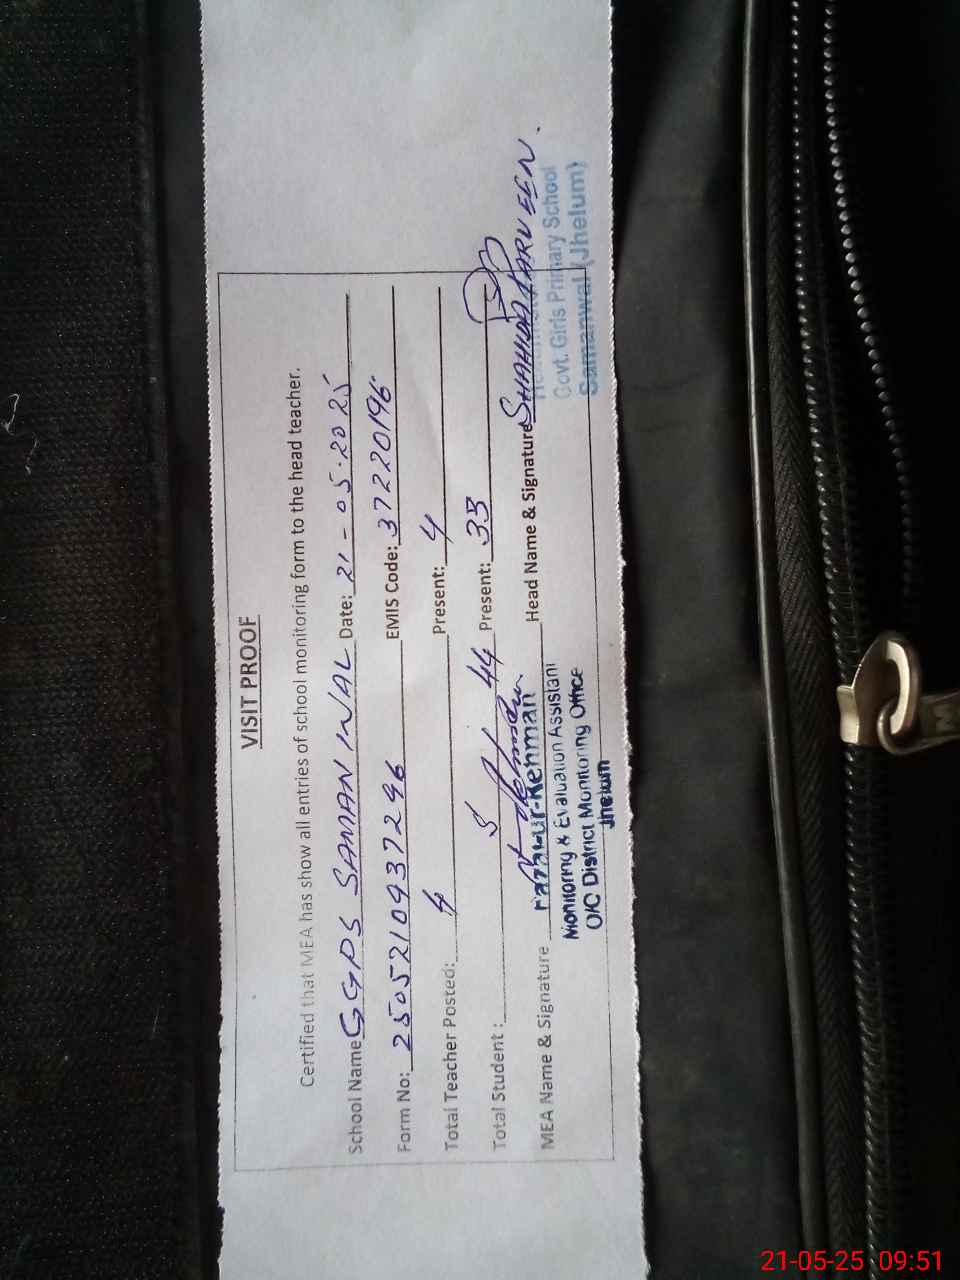 VISIT PROOF
Certified that MEA has show all entries of school monitoring form to the head teacher.
School Name GGPS SAMAN WAL Date: 21-05-2025
Form No: 250521094372 96 EMIS Code: 37220196
Total Teacher Posted: 4 Present: 4
Total Student : 44 Present: 33
MEA Name & Signature Head Name & Signature SHAHIDA PARVEEN.
-ur-Rehman
Monitoring & Evaluation Assistant
O/C District Monitoring Office
Jhelum
Govt. Girls Primary School
Samanwal (Jhelum)
21-05-25 09:51